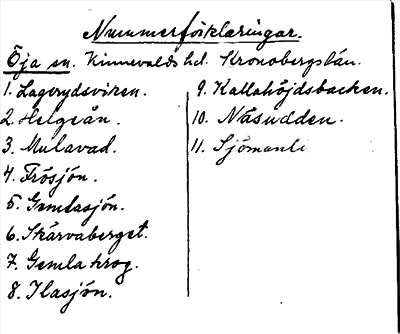 Nummerförklaringar.
Öja sn. Kinnevalds hd. Kronobergslän.
1. Lagerydsviken.
2. Helgeån.
3. Mulavad.
4. Frösjön.
5. Gemlasjön.
6. Skärvaberget.
7. Gemla krog.
8. Ilasjön.
9. Kallahöjdsbacken.
10. Näsudden.
11.